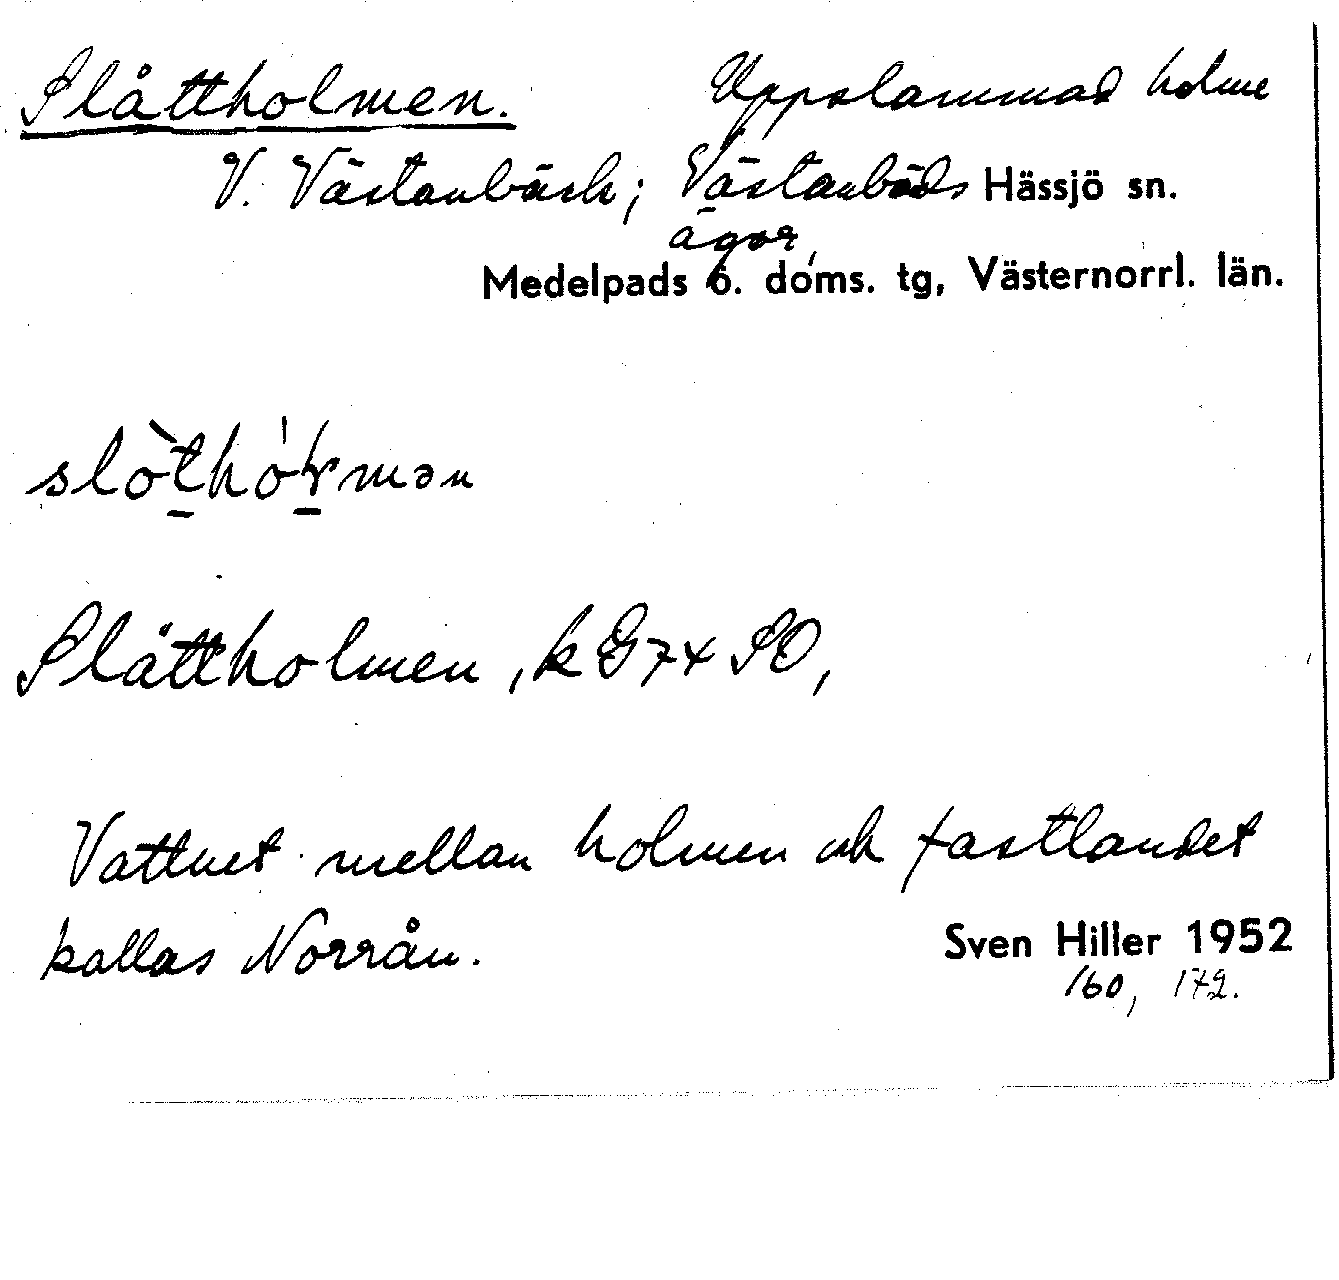 Slåttholmen. Uppslammad holme
V. Västanbäck; Västanbäcks Hässjö sn.
ägor,
Medelpads ö. doms. tg, Västernorrl. län.
Slåttholmen, k G74 SO,
Vattnet mellan holmen och fastlandet
kallas Norrån.
Sven Hiller 1952
160, 172.